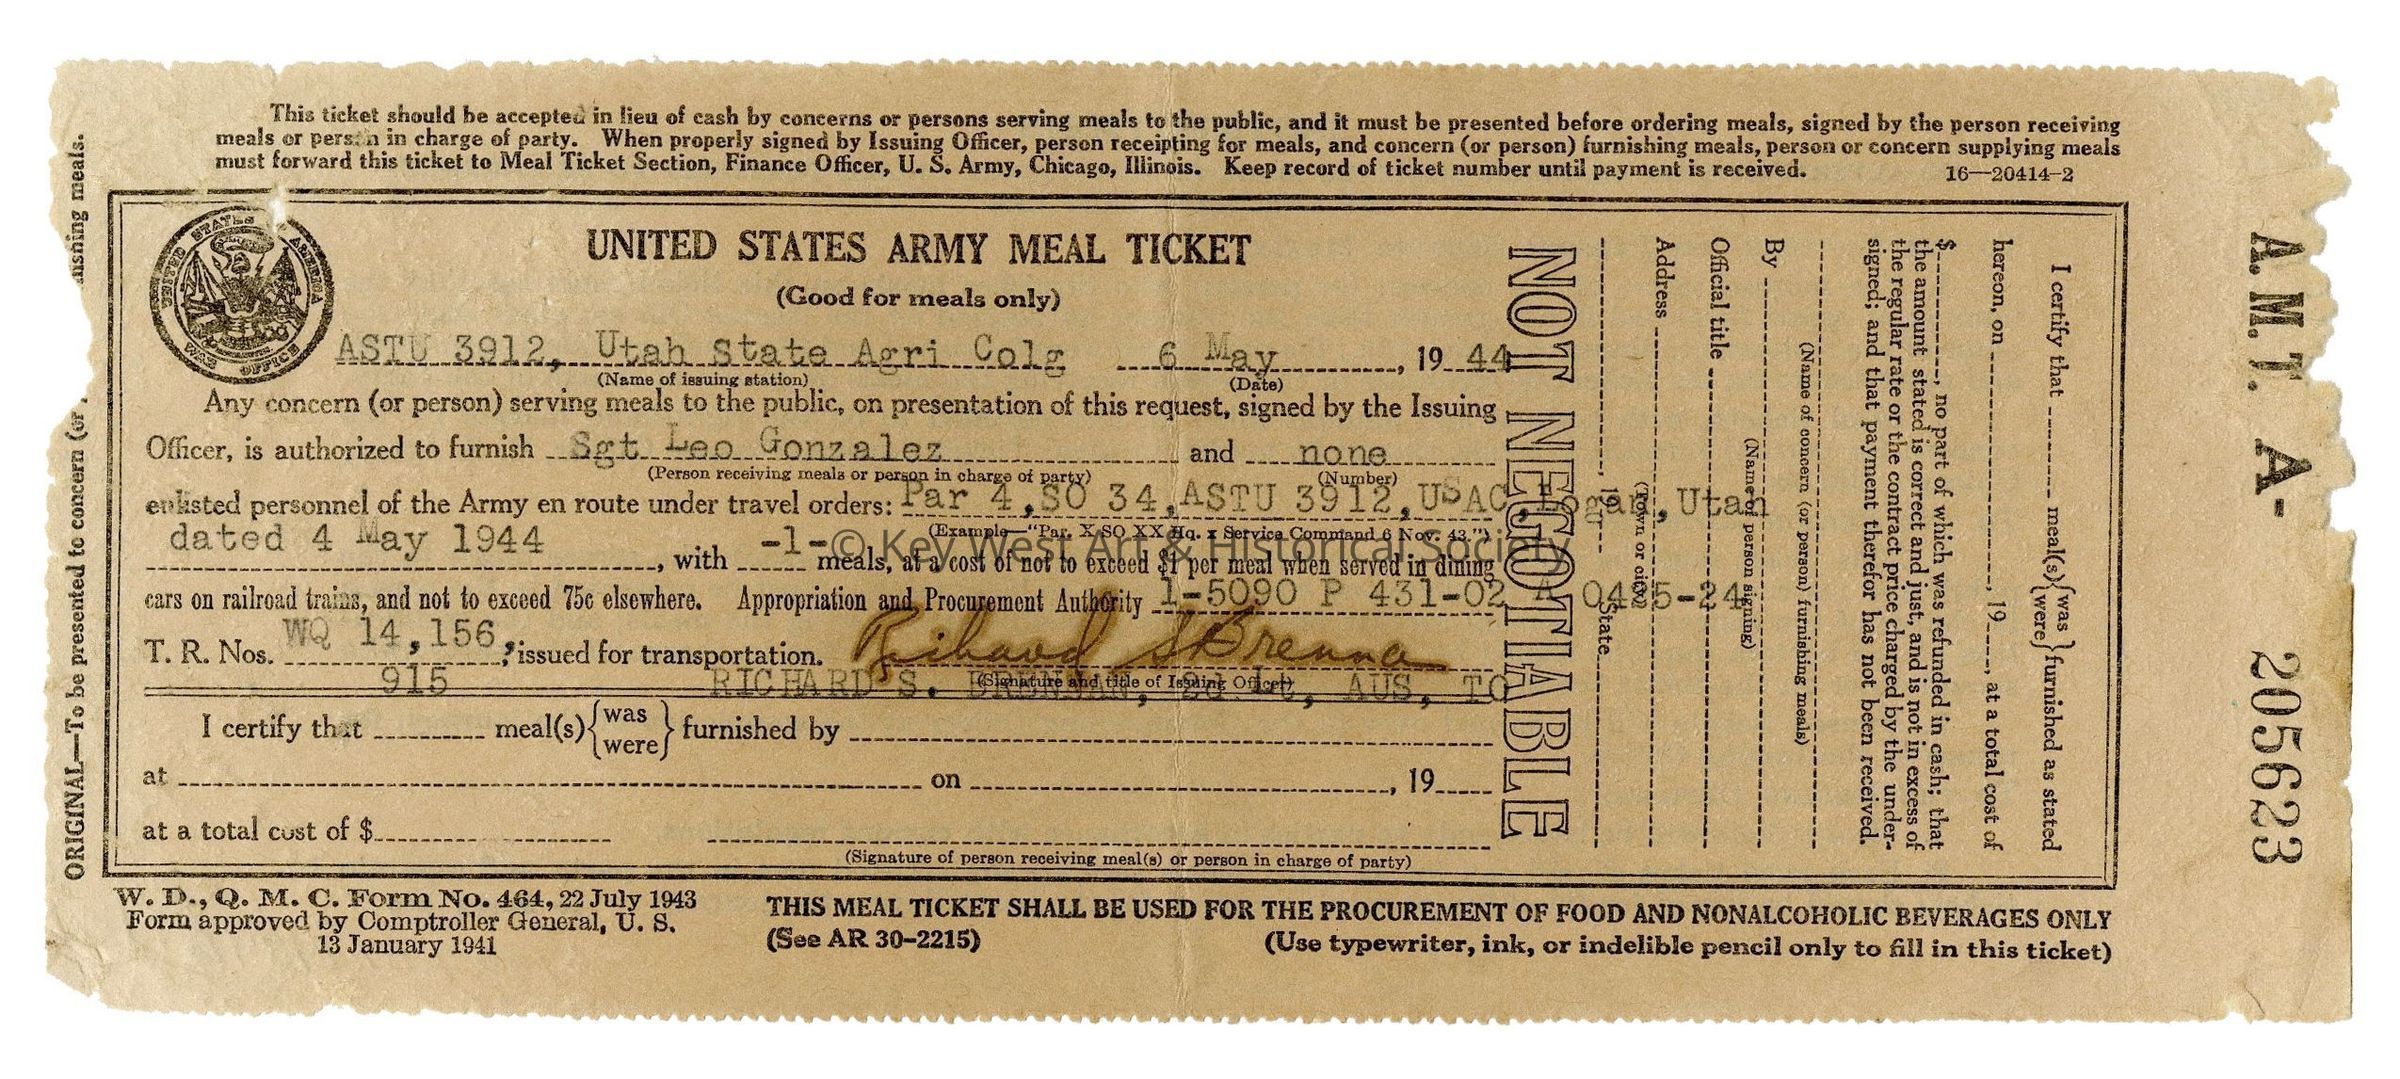 This ticket should be accepted in lieu of cash by concerns or persons serving meals to the public, and it must be presented before ordering meals, signed by the person receiving
meals or person in charge of party. When properly signed by Issuing Officer, person receipting for meals, and concern (or person) furnishing meals, person or concern supplying meals
must forward this ticket to Meal Ticket Section, Finance Officer, U. S. Army, Chicago, Illinois. Keep record of ticket number until payment is received. 16—20414-2
UNITED STATES OF AMERICA
WAR OFFICE
UNITED STATES ARMY MEAL TICKET
(Good for meals only)
ASTU 3912, Utah State Agri Colg 6 May, 19 44
(Name of issuing station) (Date)
Any concern (or person) serving meals to the public, on presentation of this request, signed by the Issuing
Officer, is authorized to furnish Sgt Leo Gonzalez and none
(Person receiving meals or person in charge of party) (Number)
enlisted personnel of the Army en route under travel orders: Par 4, SO 34, ASTU 3912, USAC, Logan, Utah
(Example—"Par. X SO XX Hq. x Service Command 6 Nov. 43.")
dated 4 May 1944, with -1- meals, at a cost of not to exceed $1 per meal when served in dining
cars on railroad trains, and not to exceed 75c elsewhere. Appropriation and Procurement Authority 1-5090 P 431-02 A 0425-24
T. R. Nos. WQ 14,156, issued for transportation. Richard S Brennan
915 RICHARD S. BRENNAN, 2d Lt, AUS, TO
(Signature and title of Issuing Officer)
I certify that meal(s) {was were} furnished by
at on , 19
at a total cost of $
(Signature of person receiving meal(s) or person in charge of party)
W. D., Q. M. C. Form No. 464, 22 July 1943
Form approved by Comptroller General, U. S.
13 January 1941
THIS MEAL TICKET SHALL BE USED FOR THE PROCUREMENT OF FOOD AND NONALCOHOLIC BEVERAGES ONLY
(See AR 30-2215) (Use typewriter, ink, or indelible pencil only to fill in this ticket)
ORIGINAL—To be presented to concern (or nishing meals.
NOT NEGOTIABLE
I certify that meal(s) {was were} furnished as stated
hereon, on , 19 , at a total cost of
$ , no part of which was refunded in cash; that
the amount stated is correct and just, and is not in excess of
the regular rate or the contract price charged by the under-
signed; and that payment therefor has not been received.
(Name of concern (or person) furnishing meals)
By
(Name of person signing)
Official title
Address
(Town or city)
, 19 State
A. M. T. A- 205623
© Key West Art & Historical Society